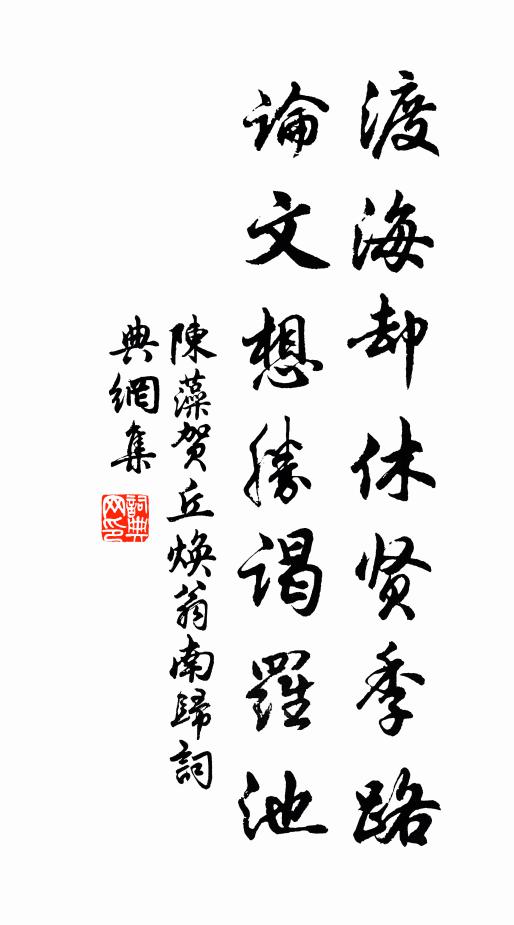 渡海却休贤季路
论文想勝谒羅池
陳藻贺丘焕翁南歸詞
典網集
詞典网印